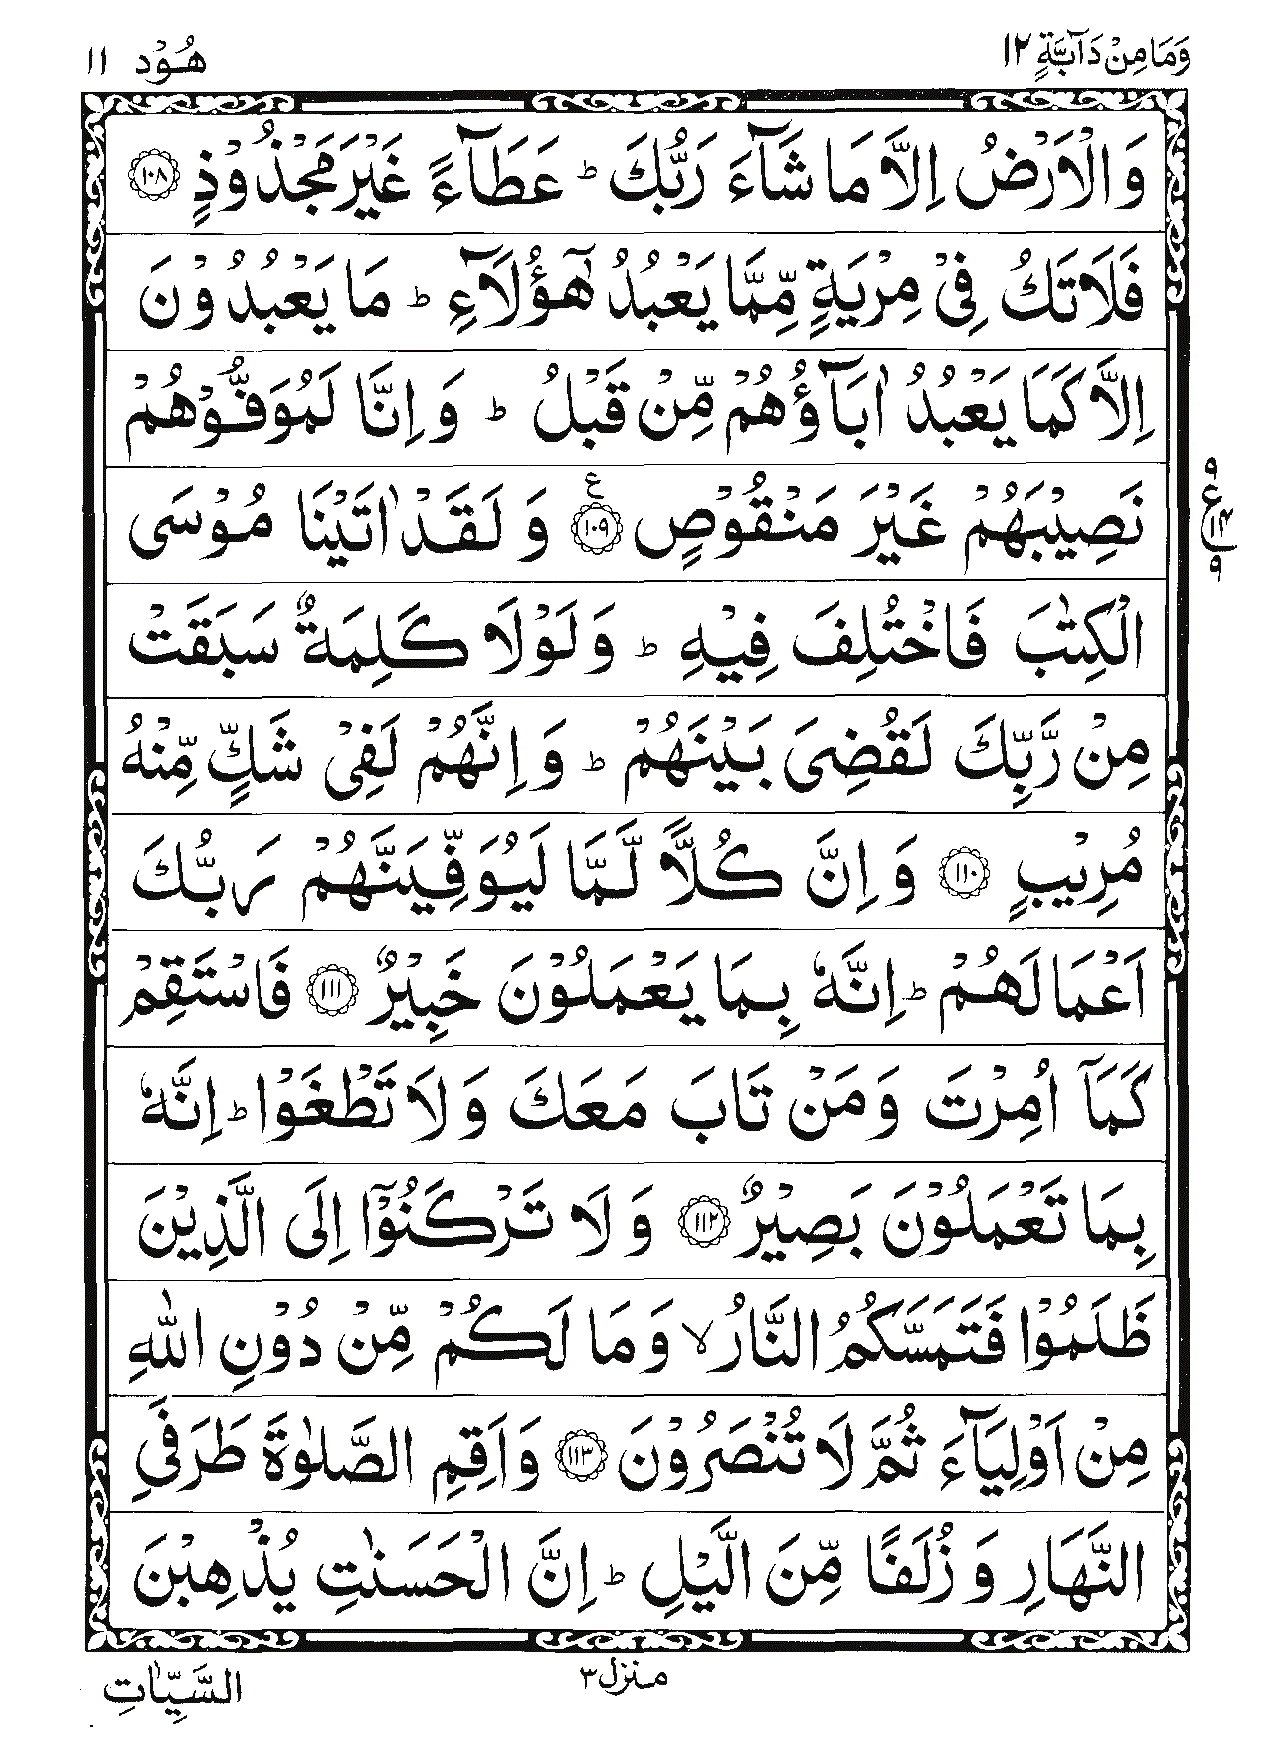 وَمَا مِنْ دَآبَّةٍ ۱۲
هُوْد ۱۱
وَالْاَرْضُ اِلَّا مَا شَآءَ رَبُّكَ ؕ عَطَآءً غَيْرَ مَجْذُوْذٍ ﴿۱۰۸﴾
فَلَا تَكُ فِيْ مِرْيَةٍ مِّمَّا يَعْبُدُ هٰٓؤُلَآءِ ؕ مَا يَعْبُدُوْنَ
اِلَّا كَمَا يَعْبُدُ اٰبَآؤُهُمْ مِّنْ قَبْلُ ؕ وَ اِنَّا لَمُوَفُّوْهُمْ
نَصِيْبَهُمْ غَيْرَ مَنْقُوْصٍ ﴿۱۰۹﴾ ع وَ لَقَدْ اٰتَيْنَا مُوْسَى
۹
ع
۱۴
۹
الْكِتٰبَ فَاخْتُلِفَ فِيْهِ ؕ وَ لَوْلَا كَلِمَةٌ سَبَقَتْ
مِنْ رَّبِّكَ لَقُضِيَ بَيْنَهُمْ ؕ وَ اِنَّهُمْ لَفِيْ شَكٍّ مِّنْهُ
مُرِيْبٍ ﴿۱۱۰﴾ وَ اِنَّ كُلًّا لَّمَّا لَيُوَفِّيَنَّهُمْ رَبُّكَ
اَعْمَالَهُمْ ؕ اِنَّهٗ بِمَا يَعْمَلُوْنَ خَبِيْرٌ ﴿۱۱۱﴾ فَاسْتَقِمْ
كَمَآ اُمِرْتَ وَمَنْ تَابَ مَعَكَ وَلَا تَطْغَوْا ؕ اِنَّهٗ
بِمَا تَعْمَلُوْنَ بَصِيْرٌ ﴿۱۱۲﴾ وَ لَا تَرْكَنُوْٓا اِلَى الَّذِيْنَ
ظَلَمُوْا فَتَمَسَّكُمُ النَّارُ ۙ وَ مَا لَكُمْ مِّنْ دُوْنِ اللّٰهِ
مِنْ اَوْلِيَآءَ ثُمَّ لَا تُنْصَرُوْنَ ﴿۱۱۳﴾ وَاَقِمِ الصَّلٰوةَ طَرَفَيِ
النَّهَارِ وَ زُلَفًا مِّنَ الَّيْلِ ؕ اِنَّ الْحَسَنٰتِ يُذْهِبْنَ
منزل ۳
السَّيِّاٰتِ